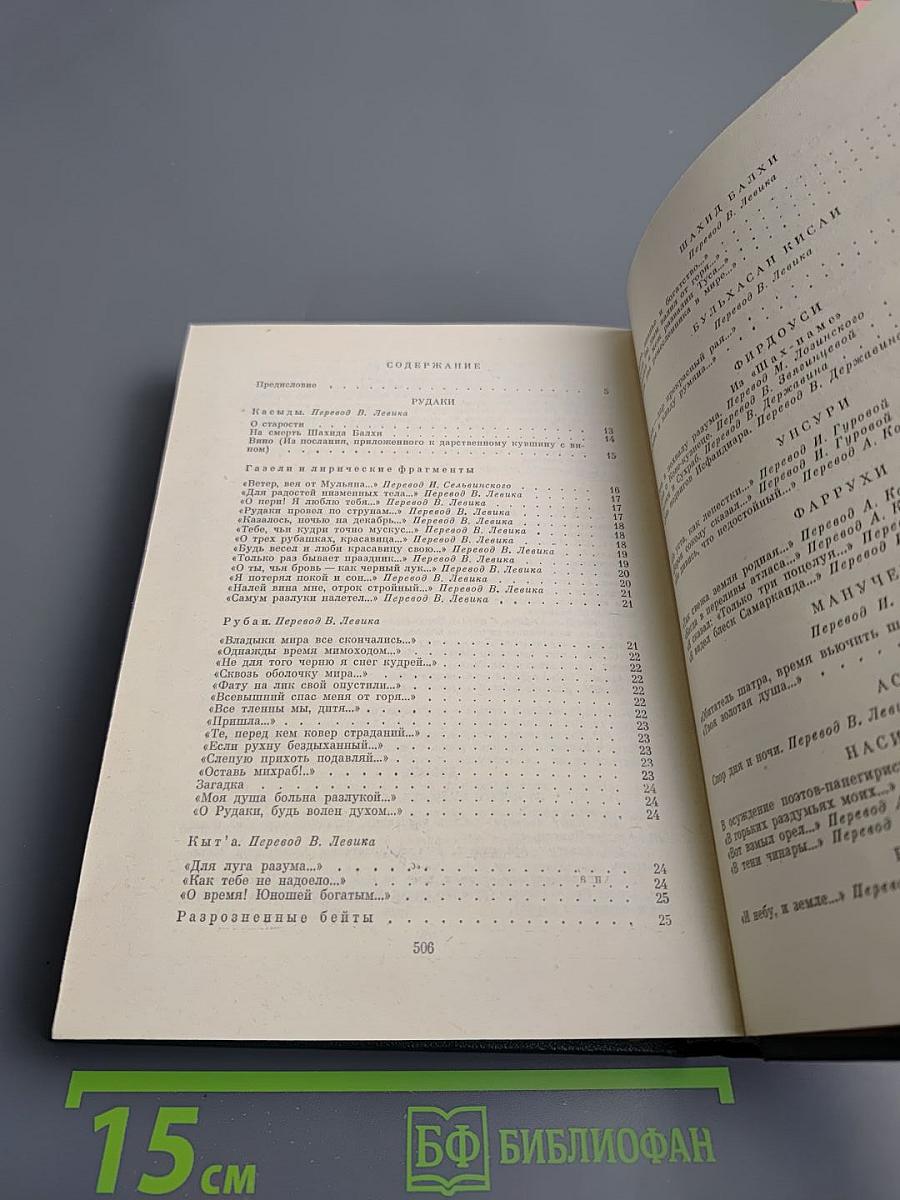 СОДЕРЖАНИЕ
Предисловие . . . . . . . . . . . . . . . . . . . . . . 5
РУДАКИ
Касыды. Перевод В. Левика
О старости . . . . . . . . . . . . . . . . . . . . . . 13
На смерть Шахида Балхи . . . . . . . . . . . . . . . . 14
Вино (Из послания, приложенного к дарственному кувшину с ви-
ном) . . . . . . . . . . . . . . . . . . . . . . 15
Газели и лирические фрагменты
«Ветер, вея от Мульяна...» Перевод И. Сельвинского . . . 16
«Для радостей низменных тела...» Перевод В. Левика . . . 17
«О пери! Я люблю тебя...» Перевод В. Левика . . . 17
«Рудаки провел по струнам...» Перевод В. Левика . . . 17
«Казалось, ночью на декабрь...» Перевод В. Левика . . . 17
«Тебе, чьи кудри точно мускус...» Перевод В. Левика . . . 18
«О трех рубашках, красавица...» Перевод В. Левика . . . 18
«Будь весел и люби красавицу свою...» Перевод В. Левика . . . 18
«Только раз бывает праздник...» Перевод В. Левика . . . 19
«О ты, чья бровь — как черный лук...» Перевод В. Левика . . . 19
«Я потерял покой и сон...» Перевод В. Левика . . . 20
«Налей вина мне, отрок стройный...» Перевод В. Левика . . . 20
«Самум разлуки налетел...» Перевод В. Левика . . . 21
21
Рубаи. Перевод В. Левика
«Владыки мира все скончались...» . . . 21
«Однажды время мимоходом...» . . . 22
«Не для того черню я снег кудрей...» . . . 22
«Сквозь оболочку мира...» . . . 22
«Фату на лик свой опустили...» . . . 22
«Всевышний спас меня от горя...» . . . 22
«Все тленны мы, дитя...» . . . 22
«Пришла...» . . . 23
«Те, перед кем ковер страданий...» . . . 23
«Если рухну бездыханный...» . . . 23
«Слепую прихоть подавляй...» . . . 23
«Оставь михраб!..» . . . 23
Загадка . . . 24
«Моя душа больна разлукой...» . . . 24
«О Рудаки, будь волен духом...» . . . 24
Кыт'а. Перевод В. Левика
«Для луга разума...» . . . 24
«Как тебе не надоело...» . . . 24
«О время! Юношей богатым...» . . . 25
Разрозненные бейты . . . 25
506
ШАХИД БАЛХИ
Перевод В. Левика
и богатство...»
БУЛЬХАСАН КИСАИ
Перевод В. Левика
прекрасный рая...»
ФИРДОУСИ
Из «Шах-наме»
разума. Перевод М. Лозинского
Перевод В. Звягинцевой
и Сухраб. Перевод В. Державина
Исфандиара. Перевод В. Державина
УНСУРИ
как лепестки...» Перевод И. Гуровой
сказал...» Перевод И. Гуровой
что недостойный...» Перевод А.
ФАРРУХИ
свежа земля родная...» Перевод А.
в переливы атласа...» Перевод А.
«Я сказал: «Только три поцелуя...»
«Я видел блеск Самарканда...» Перевод
МАНУЧЕ
Перевод И.
шатра, время вьючить
«Твоя золотая душа...»
АС
Спор дня и ночи. Перевод В. Леви
НАСИ
В осуждение поэтов-панегирист
«В горьких раздумьях моих...»
«Вот взмыл орел...» Перевод
«В тени чинары...» Перевод
«И небу, и земле...» Перев
15 см
БФ БИБЛИОФАН